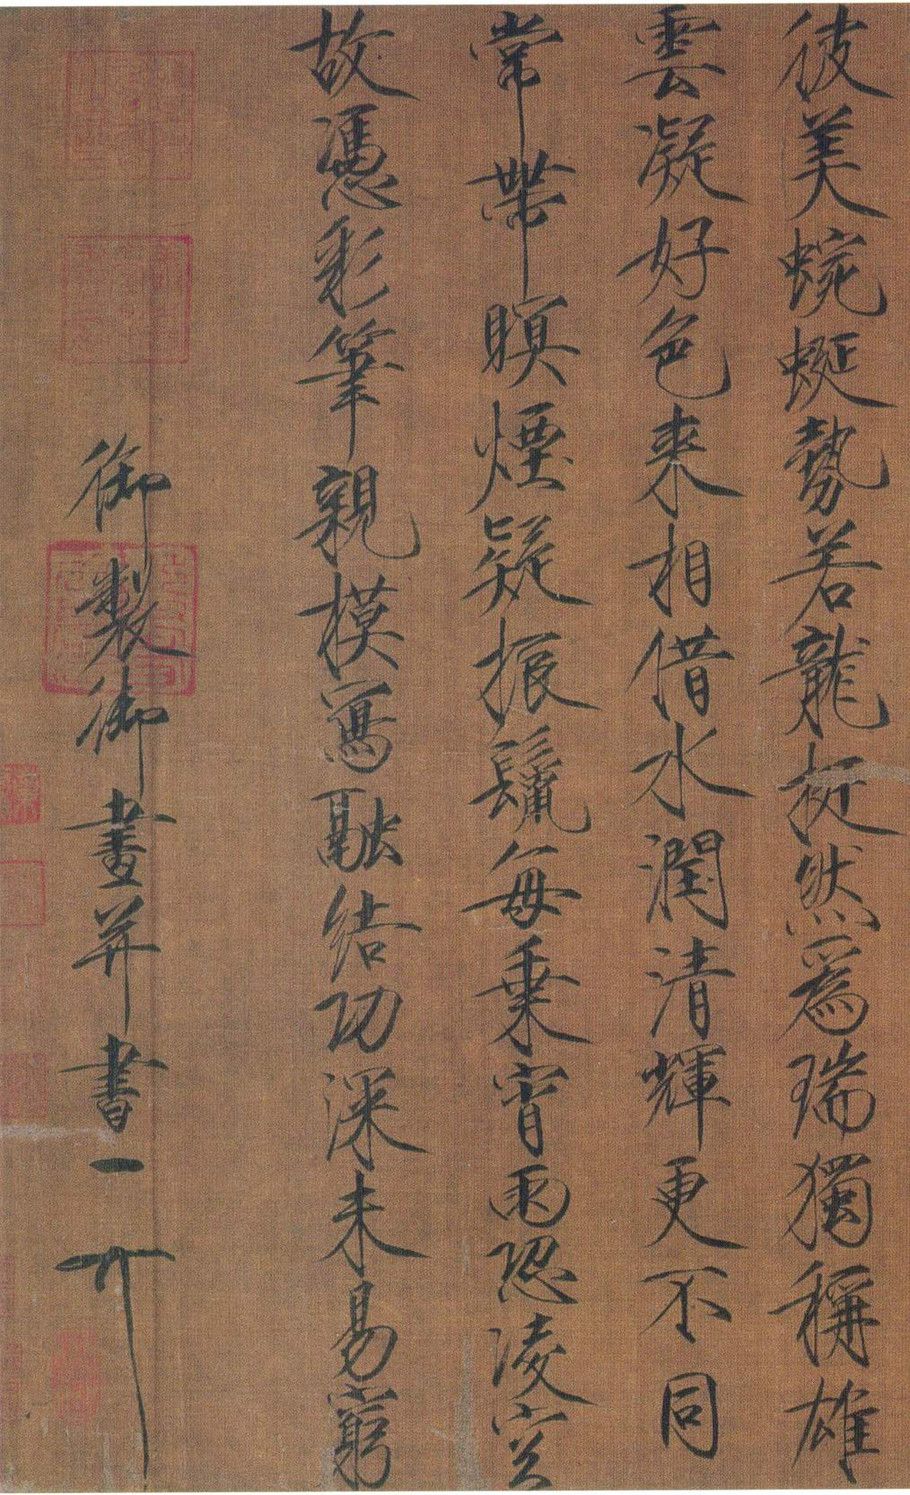 彼美蜿蜒勢若龍挺然爲瑞獨稱雄
雲凝好色来相借水潤清輝更不同
常帶暝煙疑振鬣每乘宵雨恐凌空
故憑彩筆親模寫融結功深未易窮
御製御畫并書天下一人